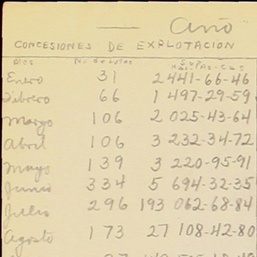 Año
CONCESIONES DE EXPLOTACION
Enero 31 2 441-66-46
Febrero 66 1 497-29-59
Marzo 106 2 025-43-64
Abril 106 3 232-34-72
Mayo 139 3 220-95-91
Junio 334 5 694-32-35
Julio 296 193 062-68-84
Agosto 173 27 108-42-80